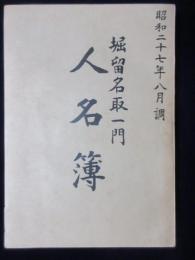 昭和二十七年八月調
堀留名取一門
人名簿